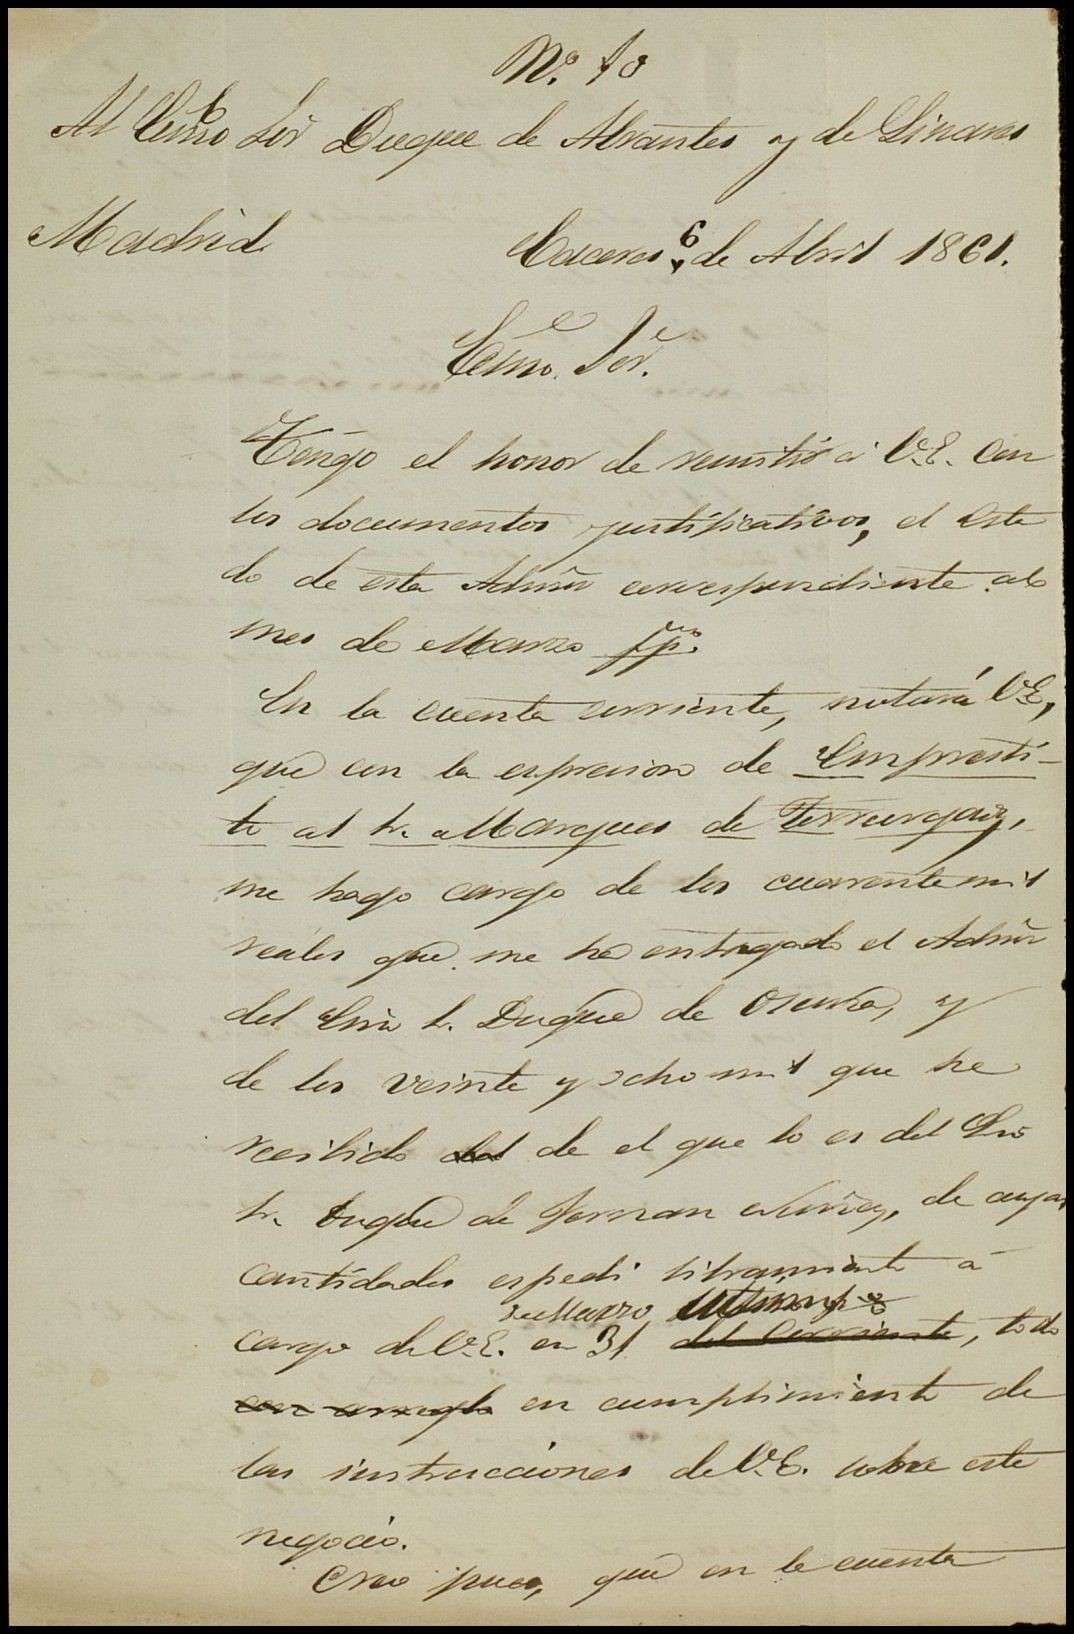 Nº. 10
Al Exmo Sor Duque de Abrantes y de Linares
Madrid
Caceres 6 de Abril 1861.
Exmo. Sor.
Tengo el honor de remitir á V.E. con
los documentos justificativos, el esta
do de esta Admon correspondiente al
mes de Marzo ppº.
En la cuenta corriente, notará V.E,
que con la espresion de Empresti-
to al Sr. Marques de
me hago cargo de los cuarenta mil
reales que me ha entregado el Admor
del Exmo S. Duque de Osuna, y
de los veinte y ocho mil que he
recibido del de el que lo es del Exmo
Sr. Duque de Fernan Nuñez, de cuyas
cantidades espedi libramiento á
de Marzo ultimo
cargo de V.E. en 31 del corriente, todo
con arreglo en cumplimiento de
las instrucciones de V.E. sobre este
negocio.
Creo pues, que en la cuenta